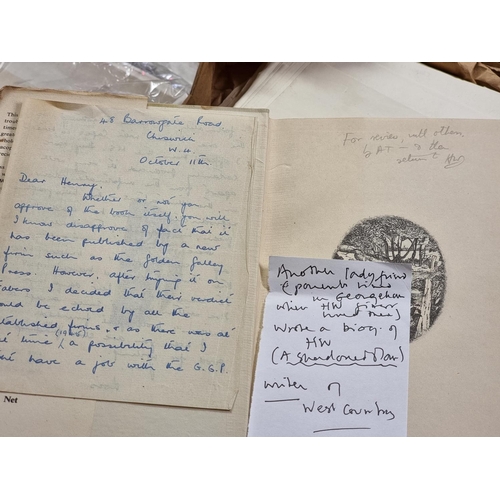 48 Barrowgate Road
Chiswick
W.4.
October 11th
Dear Henry,
Whether or not you
approve of the book itself, you will
I know disapprove of fact that it
has been published by a new
firm such as the Golden Galley
Press. However, after trying it on
Fabers I decided that their verdict
would be echoed by all the
established firms, & as there was at
time (1948), a possibility that I
have a job with the G.G.P.
Net
For review, with others
by A.T. – to then
return HW
Another lady friend
(parents lived
in Georgeham
when HW first
lived there)
Wrote a biog. of
HW
(A sbandoned Man)
writer of
West Country